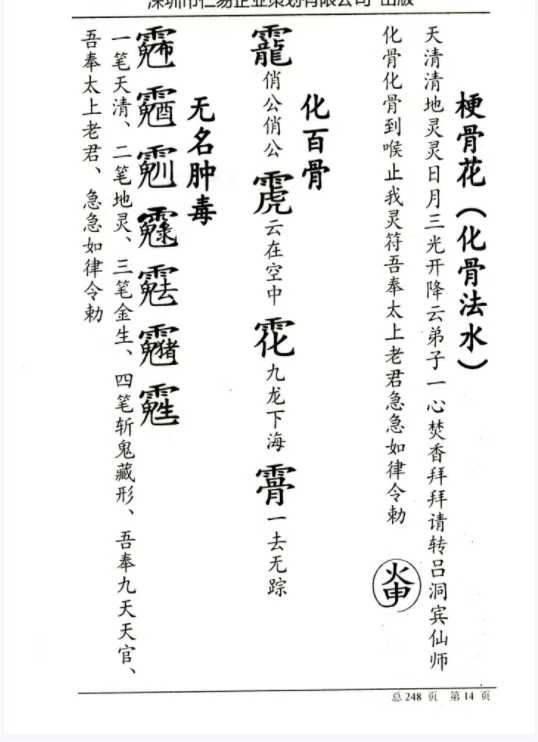 深圳市仁易企业策划有限公司 出版
梗骨花（化骨法水）
天清清地灵灵日月三光开降云弟子一心焚香拜拜请转吕洞宾仙师
化骨化骨到喉止我灵符吾奉太上老君急急如律令勅
化百骨
俏公俏公
云在空中
九龙下海
一去无踪
无名肿毒
一笔天清、二笔地灵、三笔金生、四笔斩鬼藏形、吾奉九天天官、
吾奉太上老君、急急如律令勅
总 248 页 第 14 页